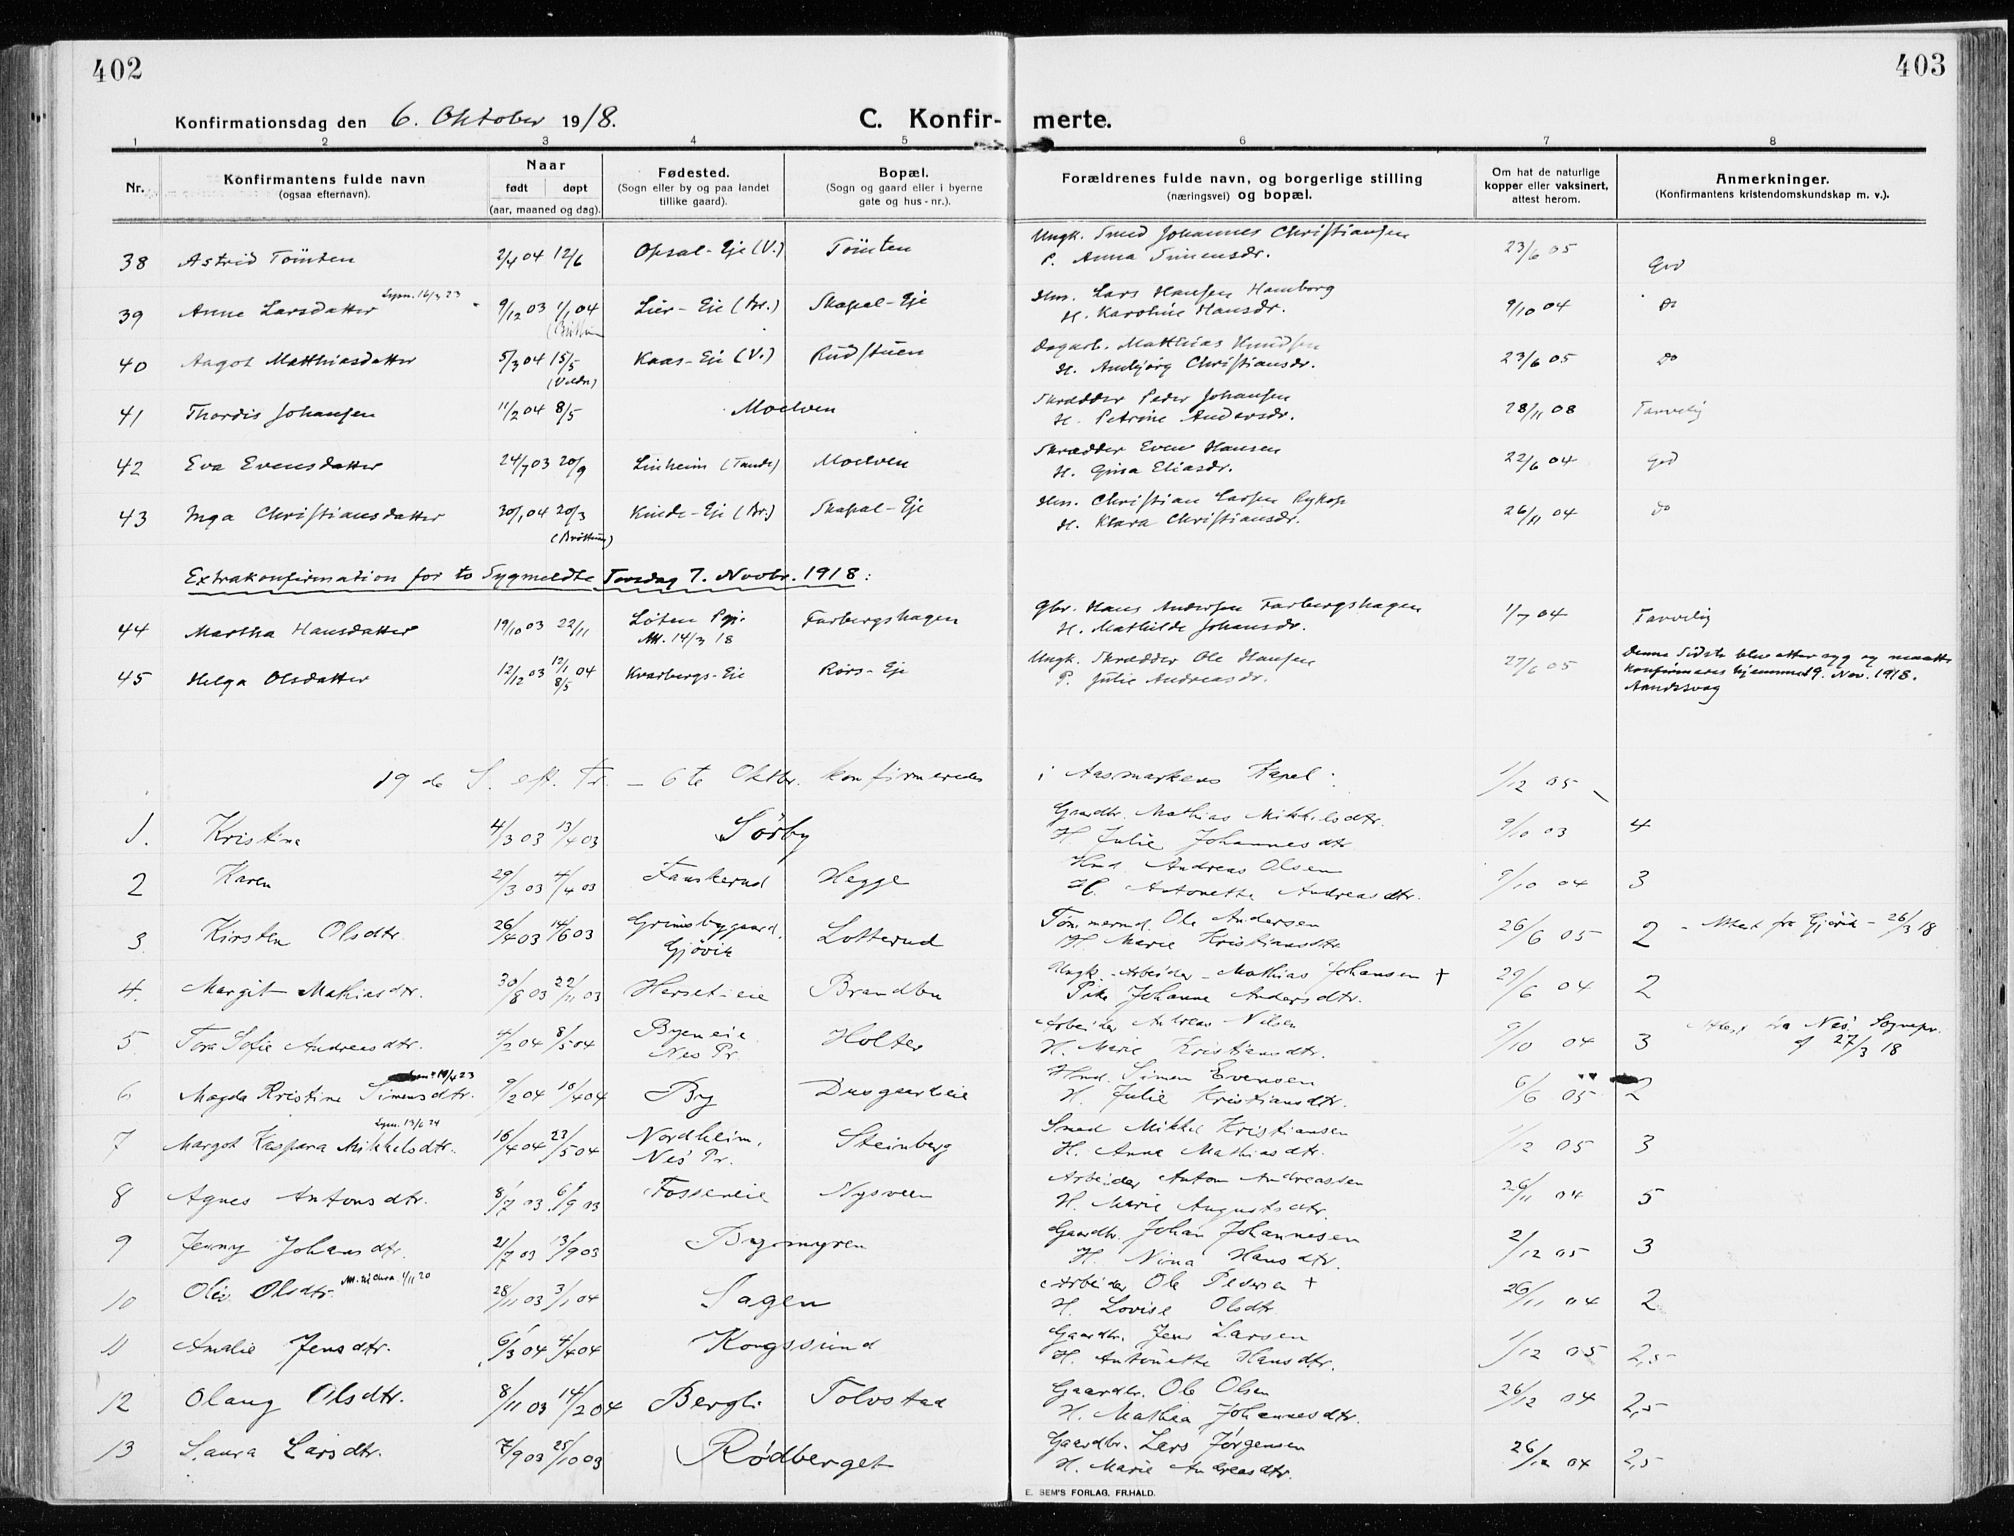 402
403
Konfirmationsdag den 6. Oktober 1918.
C. Konfir- merte.
1 2 3 4 5 6 7 8
Nr.
Konfirmantens fulde navn
(ogsaa efternavn).
Naar
født døpt
(aar, maaned og dag).
Fødested.
(Sogn eller by og paa landet
tillike gaard).
Bopæl.
(Sogn og gaard eller i byerne
gate og hus-nr.).
Forældrenes fulde navn, og borgerlige stilling
(næringsvei) og bopæl.
Om hat de naturlige
kopper eller vaksinert,
attest herom.
Anmerkninger.
(Konfirmantens kristendomskundskap m. v.).
38 Astrid Tömten 2/4 04 12/6 Opsal-Eje (V.) Tömten
Ungk. Smed Johannes Christiansen
P. Anna Simensdr. 23/6 05 God
39 Anne Larsdatter 9/12 03 1/1 04 Lier-Eje (Br.) Skapal-Eje
Hm. Lars Hansen Hamborg
H. Karoline Hansdr. 9/10 04 do
40 Aagot Matthiasdatter 5/3 04 15/5 (Veldr) Kaas-Eje (V.) Rudstuen
Dagarb. Matthias Knudsen
H. Ambjørg Christiansdr. 23/6 05 do
41 Thordis Johansen 11/2 04 8/5 Moelven
Skrædder Peder Johansen
H. Petrine Andersdr. 28/11 08 Tarvelig
42 Eva Evensdatter 24/7 03 20/9 Linheim (Tande) Moelven
Skrædder Even Hansen
H. Gina Eliasdr. 22/6 04 God
43 Inga Christiansdatter 30/1 04 20/3 (Brøttum) Kinde-Eje (Br.) Skapal-Eje
Hm. Christian Larsen Rykop
H. Klara Christiansdr. 26/11 04 do
Extrakonfirmation for to Sygmeldte Torsdag 7. Novbr. 1918:
44 Martha Hansdatter 19/10 03 22/11 Løten Pgj. Att. 14/3 18 Farbergshagen
Gbr. Hans Andersen Farbergshagen
H. Mathilde Johansdr. 1/7 04 Tarvelig
45 Helga Olsdatter 12/12 03 8/5 04 Kvarbergs-Eie Rørs-Eje
Ungk. Skrædder Ole Hansen
P. Julie Andreasdr. 27/6 05
Denne sidste blev atter syg og maatte
konfirmeres hjemme 19. Nov. 1918.
Aandssvag
19de S. eft. Tr. – 6te Oktbr. konfirmeredes i Aasmarkens Kapel: 1/12 05
1. Kristina 4/3 03 13/4 03 Sörby
Gaardbr. Mathias Mikkelsdtr.
H. Julie Johannesdtr 9/10 03 4
2 Karen 29/3 03 4/4 03 Fauskerud Hegge
Hmd. Andreas Olsen
H. Antonette Andreasdtr. 9/10 04 3
3 Kirsten Olsdtr. 26/4 03 14/6 03 Grimsbygaard, Gjövik Lotterud
Tömmermd. Ole Andersen
H. Marie Kristiansdtr. 26/6 05 2 – Attest fra Gjövik – 26/3 18
4. Margit Mathiasdtr. 30/8 03 22/11 03 Herset-eie Brandbu
Ungk. Arbeider – Mathias Johansen +
Pike Johanne Andersdtr. 29/6 04 2
5. Tora Sofie Andreasdtr. 4/2 04 8/5 04 Byeneie Nes Pr. Holter
Arbeider Andreas Nilsen
H. Marie Kristiansdtr. 9/10 04 3 Attest fra Nes Sognepr. af 27/3 18
6 Magda Kristine Simensdtr. 9/2 04 10/4 04 By Dusgaardeie
Hmd. Simen Evensen
H. Julie Kristiansdtr. 6/6 05 2
7 Margot Kaspara Mikkelsdtr. 16/4 04 23/5 04 Nordheim, Nes Pr. Steinberg
Smed Mikkel Kristiansen
H. Anna Mathiasdtr. 1/12 05 3
8 Agnes Antonsdtr. 8/7 03 6/9 03 Fosseneie Nysveen
Arbeider Anton Andreassen
H. Marie Augustsdtr. 26/11 04 5
9 Jenny Johansdtr. 21/7 03 13/9 03 Bysmyren
Gaardbr. Johan Johannesen
H. Nina Hansdtr. 2/12 05 3
10 Oliv Olsdtr. 28/11 03 3/1 04 Sagen
Arbeider Ole Pedersen +
H. Lovise Olsdtr 26/11 04 2
11 Amalie Jensdtr. 6/3 04 4/4 04 Kongssund
Gaardbr. Jens Larsen
H. Antonette Hansdtr. 1/12 05 2,5
12 Olaug Olsdtr. 8/11 03 14/2 04 Bergli Tolvstad
Gaardbr. Ole Olsen
H. Mathea Johannesdtr. 26/12 04 2,5
13 Laura Larsdtr. 7/9 03 25/10 03 Rødberget
Gaardbr. Lars Jørgensen
H. Marie Andreasdtr. 26/12 04 2,5
E. SEM'S FORLAG, FR.HALD.